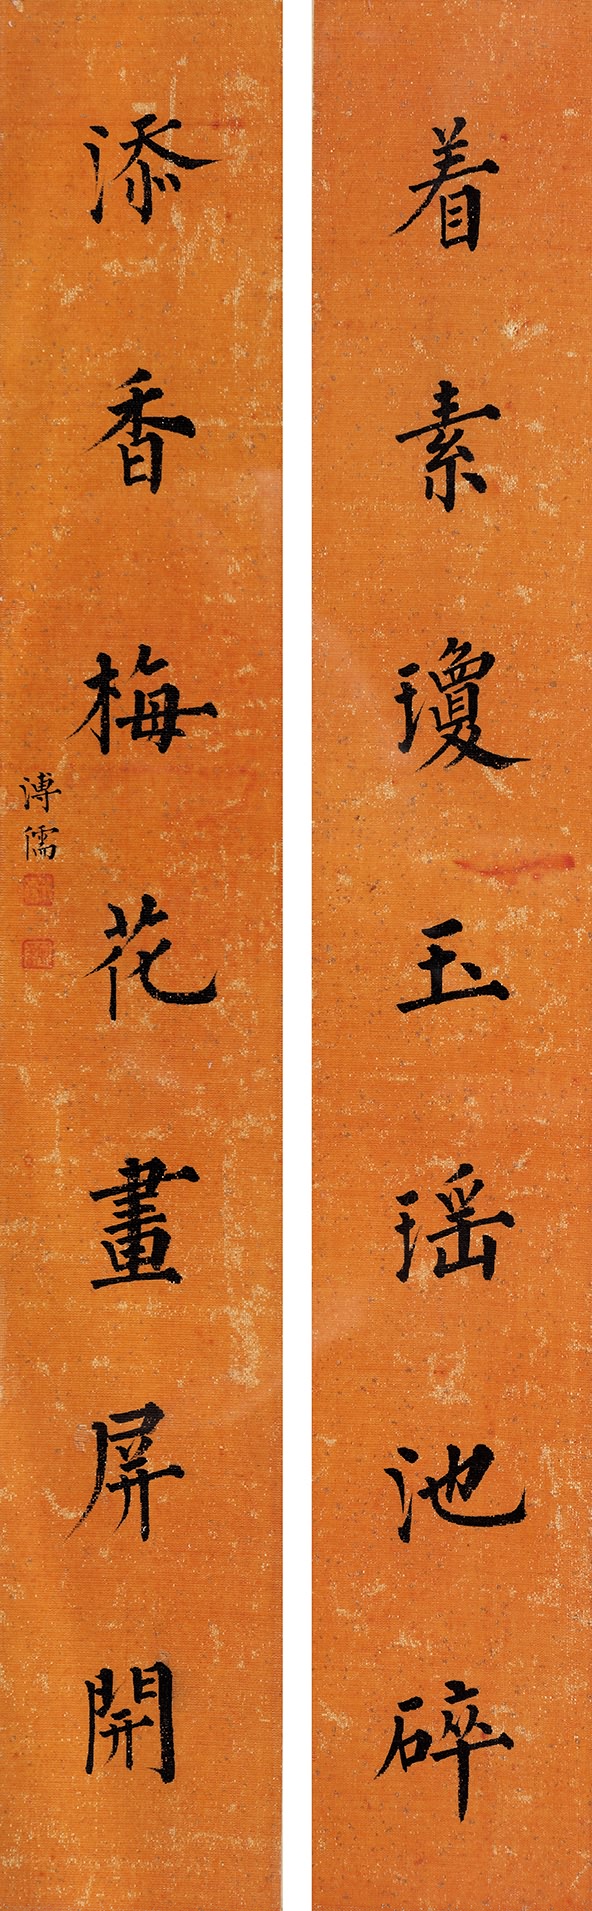 着素瓊玉瑶池碎
添香梅花畫屏開
溥儒